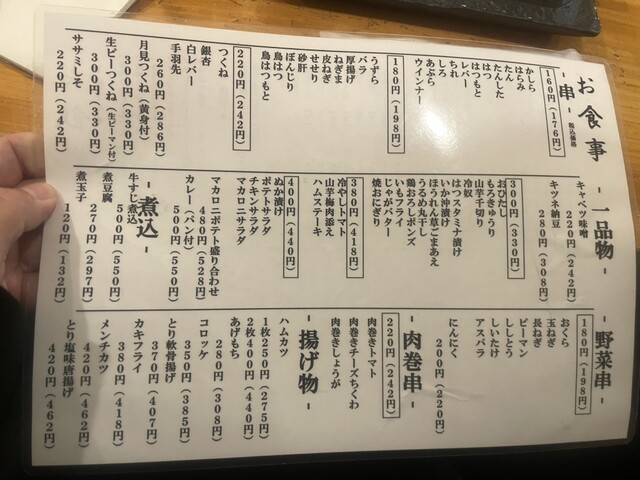 お食事
- 串 -
税込価格
160円(176円)
かしら
はらみ
たん
たんした
はつ
はつもと
レバー
ちれ
しろ
あぶら
ウインナー
180円(198円)
うずら
バラ
厚揚げ
ねぎま
皮ねぎ
せせり
砂肝
ぼんじり
鳥はつ
鳥はつもと
220円(242円)
つくね
白レバー
銀杏
手羽先
260円(286円)
月見つくね(黄身付)
300円(330円)
生ピーつくね(生ピーマン付)
300円(330円)
ササミしそ
220円(242円)
- 一品物 -
キャベツ味噌
220円(242円)
キツネ納豆
280円(308円)
300円(330円)
おひたし
もろきゅうり
山芋千切り
冷奴
はつスタミナ漬け
いか沖漬け
ほうれん草ごまあえ
うるめ丸干し
鶏おろしポンズ
いもフライ
じゃがバター
焼おにぎり
380円(418円)
冷やしトマト
山芋梅肉添え
ハムステーキ
400円(440円)
ぬか漬け
ポテトサラダ
チキンサラダ
マカロニサラダ
マカロニポテト盛り合わせ
480円(528円)
カレー(パン付)
500円(550円)
- 煮込 -
牛すじ煮込
500円(550円)
煮豆腐
270円(297円)
煮玉子
120円(132円)
- 野菜串 -
180円(198円)
おくら
玉ねぎ
長ねぎ
ピーマン
ししとう
しいたけ
アスパラ
にんにく
200円(220円)
- 肉巻串 -
220円(242円)
肉巻きトマト
肉巻きチーズちくわ
肉巻きしょうが
- 揚げ物 -
ハムカツ
1枚250円(275円)
2枚400円(440円)
あげもち
280円(308円)
コロッケ
350円(385円)
とり軟骨揚げ
370円(407円)
カキフライ
380円(418円)
メンチカツ
420円(462円)
とり塩味唐揚げ
420円(462円)